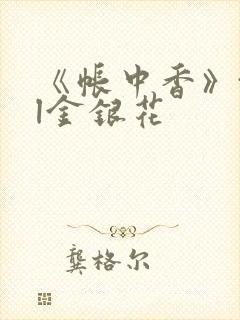 《帐中香》
|金银花
龚格尔